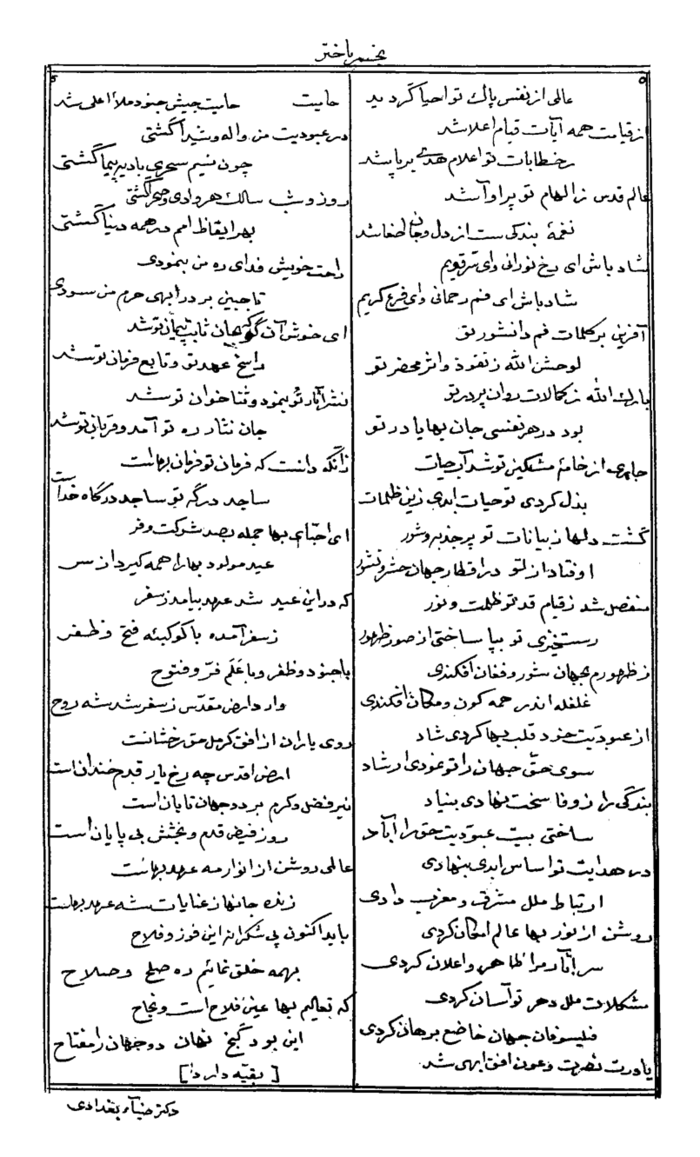 نجم باختر
عالمی از نفس پاك تو احیا گردید
از قیامت همه آیات قیام اعلا شد
ز خطابات تو اعلام هدی بر پا شد
عالم قدس ز الهام تو پر اوا شد
نغمهٔ بندگی ست از دل و جان اصغا شد
شاد باش ای رخ نورانی وای قویم
شاد باش ای فم رحمانی وای فرع کریم
آفرین بر کلمات فم دانشور تو
لوحش الله ز نفوذ و اثر محضر تو
بارك الله ز کمالات روان پرور تو
بود در هر نفسی جان بها یاور تو
جاری از خامهٔ مشکین تو شد آب حیات
بذل کردی تو حیات ابدی زین ظلمات
گشت دلها ز بیانات تو پر جذبه و شور
اوفتاد از تو در اقطار جهان حشر و نشور
منفصل شد ز قیام قد تو ظلمت و نور
رستخیزی تو بپا ساختی از صور ظهور
ز ظهورم بجهان شور و فغان افکندی
غلغله اندر همه کون و مکان افکندی
از عبودیت خود قلب بها کردی شاد
سوی حق جهان را تو نمودی ارشاد
بندگی را ز وفا سخت نهادی بنیاد
ساختی بیت عبودیت حق را آباد
در هدایت تو اساس ابدی بنهادی
ارتباط ملل مشرق و مغرب دادی
روشن از نور بها عالم امکان کردی
سر آثار مرا ظاهر و اعلان کردی
مشکلات ملل دهر تو آسان کردی
فلیسوفان جهان خاضع برهان کردی
یاورت نصرت و عون افق ابهی شد
حامیت حامیت جیش جنود ملأ اعلی شد
در عبودیت من واله و شیدا گشتی
چون نسیم سحری بادیه پیما گشتی
روز و شب سالك هر وادی و صحرا گشتی
بهر ایقاظ امم در همه دنیا گشتی
راحت خویش فدای ره من بنمودی
تا جبین بر در ابهی حرم من سودی
ای خوش آن کو که بجان ثابت پیمان تو شد
راسخ عهد تو و تابع فرمان تو شد
نشر آثار تو بنمود و ثنا خوان تو شد
جان نثار ره تو آمد و قربان تو شد
زانکه دانست که فرمان تو فرمان بهاست
ساجد درگه تو ساجد درگاه خداست
ای احبای بها جمله بصد شوکت و فر
عید مولود بها را همه گیرد از سر
که در این عید شه عهد بیامد ز سفر
ز سفر آمده با کوکبهٔ فتح و ظفر
با جنود و ظفر و با علم فر و فتوح
وارد ارض مقدس ز سفر شد شه روح
روی یاران از افق کرمل حق رخشانست
ارض اقدس چه رخ یار قدم خندان است
نیر فضل و کرم بر دو جهان تابان است
روز فیض قدم و بخشش بی پایان است
عالمی روشن از انوار مه عهد بهاست
زنده جانها ز عنایات شه عهد بهاست
باید اکنون پی شکرانه این فوز و فلاح
بهمه خلق نمائیم ره صلح و صلاح
که تعالیم بها عین فلاح است و نجاح
این بود گنج نهان دو جهان را مفتاح
[بقیه دارد]
دکتر ضیاء بغدادی